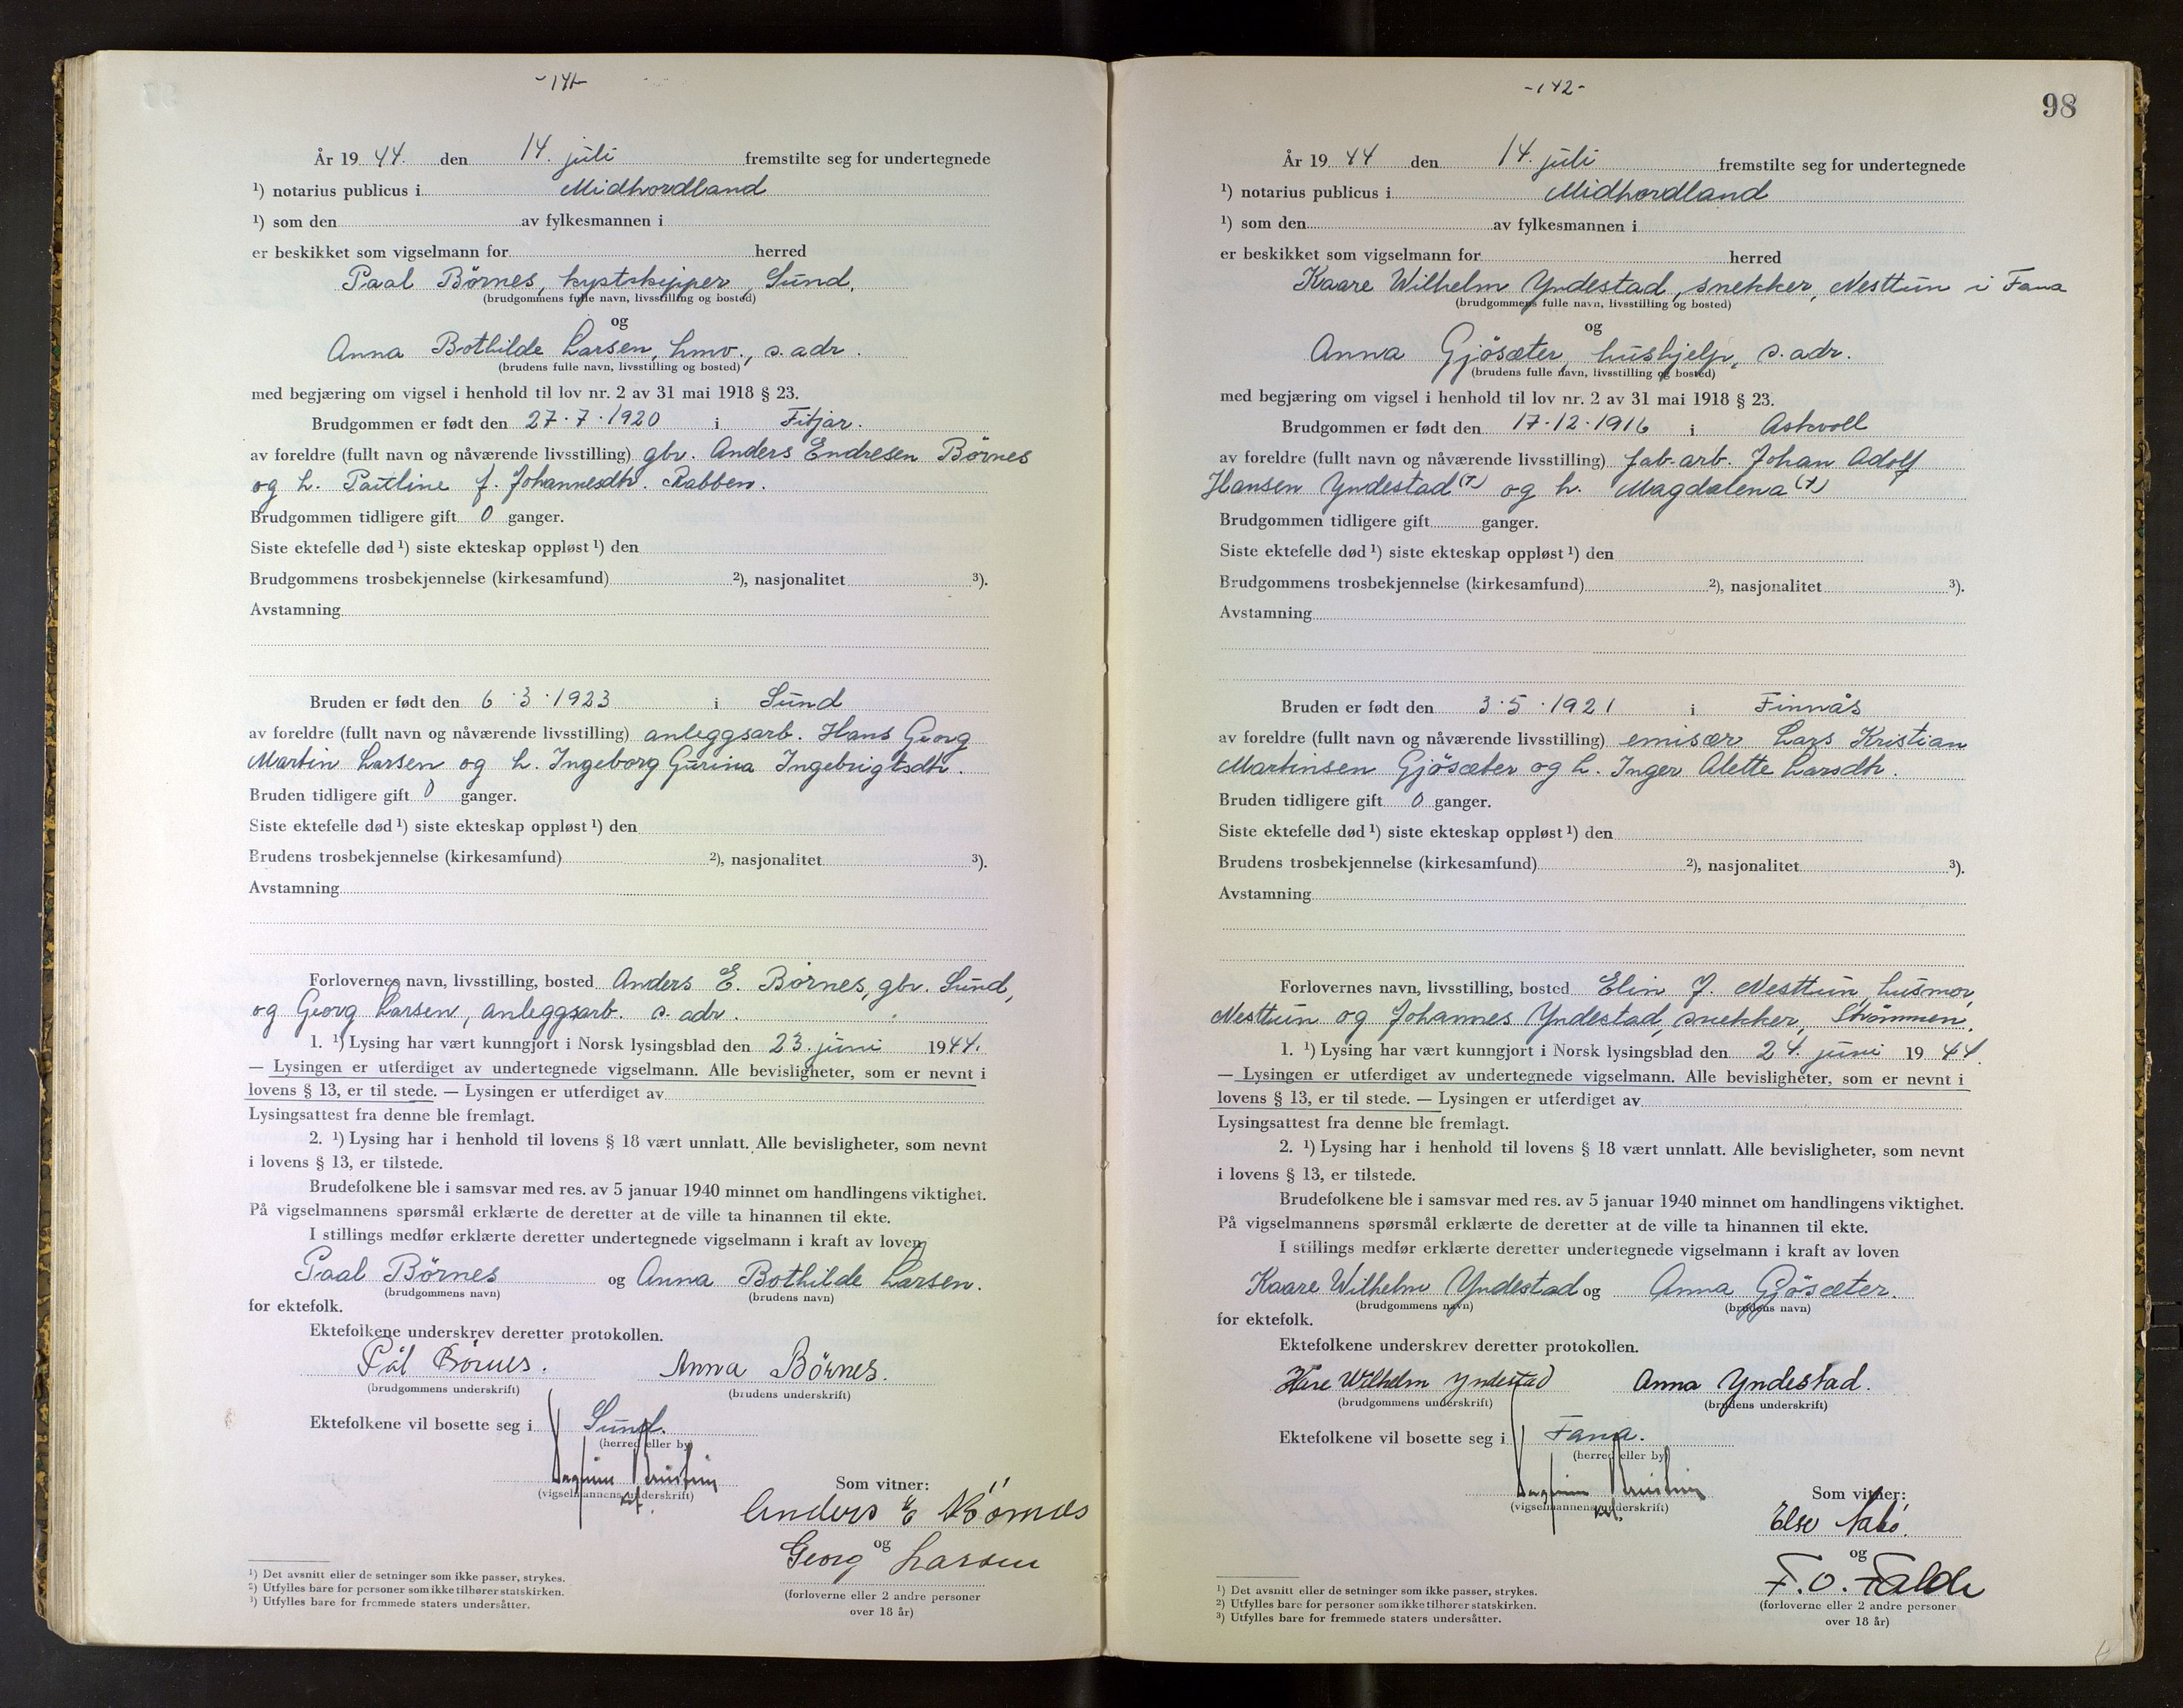 -141-
År 19 44. den 14. juli fremstilte seg for undertegnede
¹) notarius publicus i Midhordland
¹) som den av fylkesmannen i
er beskikket som vigselmann for herred
Paal Börnes, kystskipper, Sund.
(brudgommens fulle navn, livsstilling og bosted)
og
Anna Bothilde Larsen, hmv., s. adr.
(brudens fulle navn, livsstilling og bosted)
med begjæring om vigsel i henhold til lov nr. 2 av 31 mai 1918 § 23.
Brudgommen er født den 27.7.1920 i Fitjar.
av foreldre (fullt navn og nåværende livsstilling) gbr. Anders Endresen Börnes
og h. Pauline f. Johannesdtr. Rabben.
Brudgommen tidligere gift 0 ganger.
Siste ektefelle død ¹) siste ekteskap oppløst ¹) den
Brudgommens trosbekjennelse (kirkesamfund) ²), nasjonalitet ³).
Avstamning
Bruden er født den 6.3.1923 i Sund
av foreldre (fullt navn og nåværende livsstilling) anleggsarb. Hans Georg
Martin Larsen og h. Ingeborg Gurina Ingebrigtsdtr.
Bruden tidligere gift 0 ganger.
Siste ektefelle død ¹) siste ekteskap oppløst ¹) den
Brudens trosbekjennelse (kirkesamfund) ²), nasjonalitet ³).
Avstamning
Forlovernes navn, livsstilling, bosted Anders E. Börnes, gbr. Sund,
og Georg Larsen, anleggsarb. s. adr.
1. ¹) Lysing har vært kunngjort i Norsk lysingsblad den 23. juni 1944.
— Lysingen er utferdiget av undertegnede vigselmann. Alle bevisligheter, som er nevnt i
lovens § 13, er til stede. — Lysingen er utferdiget av
Lysingsattest fra denne ble fremlagt.
2. ¹) Lysing har i henhold til lovens § 18 vært unnlatt. Alle bevisligheter, som nevnt
i lovens § 13, er tilstede.
Brudefolkene ble i samsvar med res. av 5 januar 1940 minnet om handlingens viktighet.
På vigselmannens spørsmål erklærte de deretter at de ville ta hinannen til ekte.
I stillings medfør erklærte deretter undertegnede vigselmann i kraft av loven
Paal Börnes og Anna Bothilde Larsen.
(brudgommens navn) (brudens navn)
for ektefolk.
Ektefolkene underskrev deretter protokollen.
Pål Börnes. Anna Börnes.
(brudgommens underskrift) (brudens underskrift)
Ektefolkene vil bosette seg i Sund.
(herred eller by)
Som vitner:
(vigselmannens underskrift)
Anders E Börnes
og
Georg Larsen
(forloverne eller 2 andre personer
over 18 år)
¹) Det avsnitt eller de setninger som ikke passer, strykes.
²) Utfylles bare for personer som ikke tilhører statskirken.
³) Utfylles bare for fremmede staters undersåtter.
-142-
98
År 19 44 den 14. juli fremstilte seg for undertegnede
¹) notarius publicus i Midhordland
¹) som den av fylkesmannen i
er beskikket som vigselmann for herred
Kaare Wilhelm Yndestad, snekker, Nesttun i Fana
(brudgommens fulle navn, livsstilling og bosted)
og
Anna Gjösæter, hushjelp, s. adr.
(brudens fulle navn, livsstilling og bosted)
med begjæring om vigsel i henhold til lov nr. 2 av 31 mai 1918 § 23.
Brudgommen er født den 17.12.1916 i Askvoll
av foreldre (fullt navn og nåværende livsstilling) fab.arb. Johan Adolf
Hansen Yndestad (†) og h. Magdalena (†)
Brudgommen tidligere gift ganger.
Siste ektefelle død ¹) siste ekteskap oppløst ¹) den
Brudgommens trosbekjennelse (kirkesamfund) ²), nasjonalitet ³).
Avstamning
Bruden er født den 3.5.1921 i Finnås
av foreldre (fullt navn og nåværende livsstilling) emisær Lars Kristian
Martinsen Gjösæter og h. Inger Alette Larsdtr.
Bruden tidligere gift 0 ganger.
Siste ektefelle død ¹) siste ekteskap oppløst ¹) den
Brudens trosbekjennelse (kirkesamfund) ²), nasjonalitet ³).
Avstamning
Forlovernes navn, livsstilling, bosted Elin J. Nesttun, husmor,
Nesttun og Johannes Yndestad, snekker, Strömmen.
1. ¹) Lysing har vært kunngjort i Norsk lysingsblad den 24. juni 19 44.
— Lysingen er utferdiget av undertegnede vigselmann. Alle bevisligheter, som er nevnt i
lovens § 13, er til stede. — Lysingen er utferdiget av
Lysingsattest fra denne ble fremlagt.
2. ¹) Lysing har i henhold til lovens § 18 vært unnlatt. Alle bevisligheter, som nevnt
i lovens § 13, er tilstede.
Brudefolkene ble i samsvar med res. av 5 januar 1940 minnet om handlingens viktighet.
På vigselmannens spørsmål erklærte de deretter at de ville ta hinannen til ekte.
I stillings medfør erklærte deretter undertegnede vigselmann i kraft av loven
Kaare Wilhelm Yndestad og Anna Gjösæter.
(brudgommens navn) (brudens navn)
for ektefolk.
Ektefolkene underskrev deretter protokollen.
Wilhelm Yndestad Anna Yndestad.
(brudgommens underskrift) (brudens underskrift)
Ektefolkene vil bosette seg i Fana.
(herred eller by)
Som vitner:
(vigselmannens underskrift)
Else
og
F. O. Falde
(forloverne eller 2 andre personer
over 18 år)
¹) Det avsnitt eller de setninger som ikke passer, strykes.
²) Utfylles bare for personer som ikke tilhører statskirken.
³) Utfylles bare for fremmede staters undersåtter.